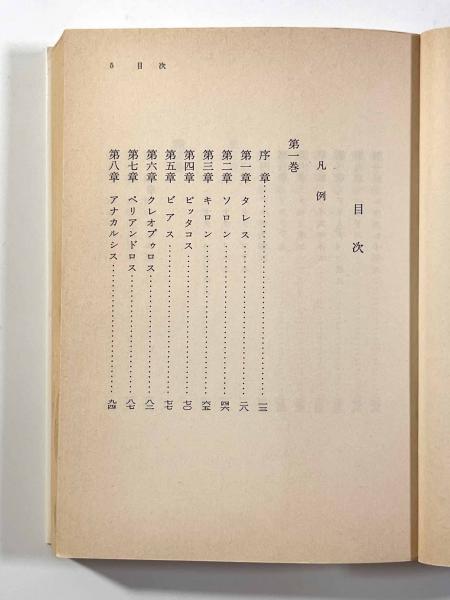 5 目次
目次
凡例
第一巻
序章……………………一三
第一章 タレス……………………二八
第二章 ソロン……………………四六
第三章 キロン……………………六五
第四章 ピッタコス……………………七〇
第五章 ビアス……………………七七
第六章 クレオブゥロス……………………八二
第七章 ペリアンドロス……………………八七
第八章 アナカルシス……………………九四